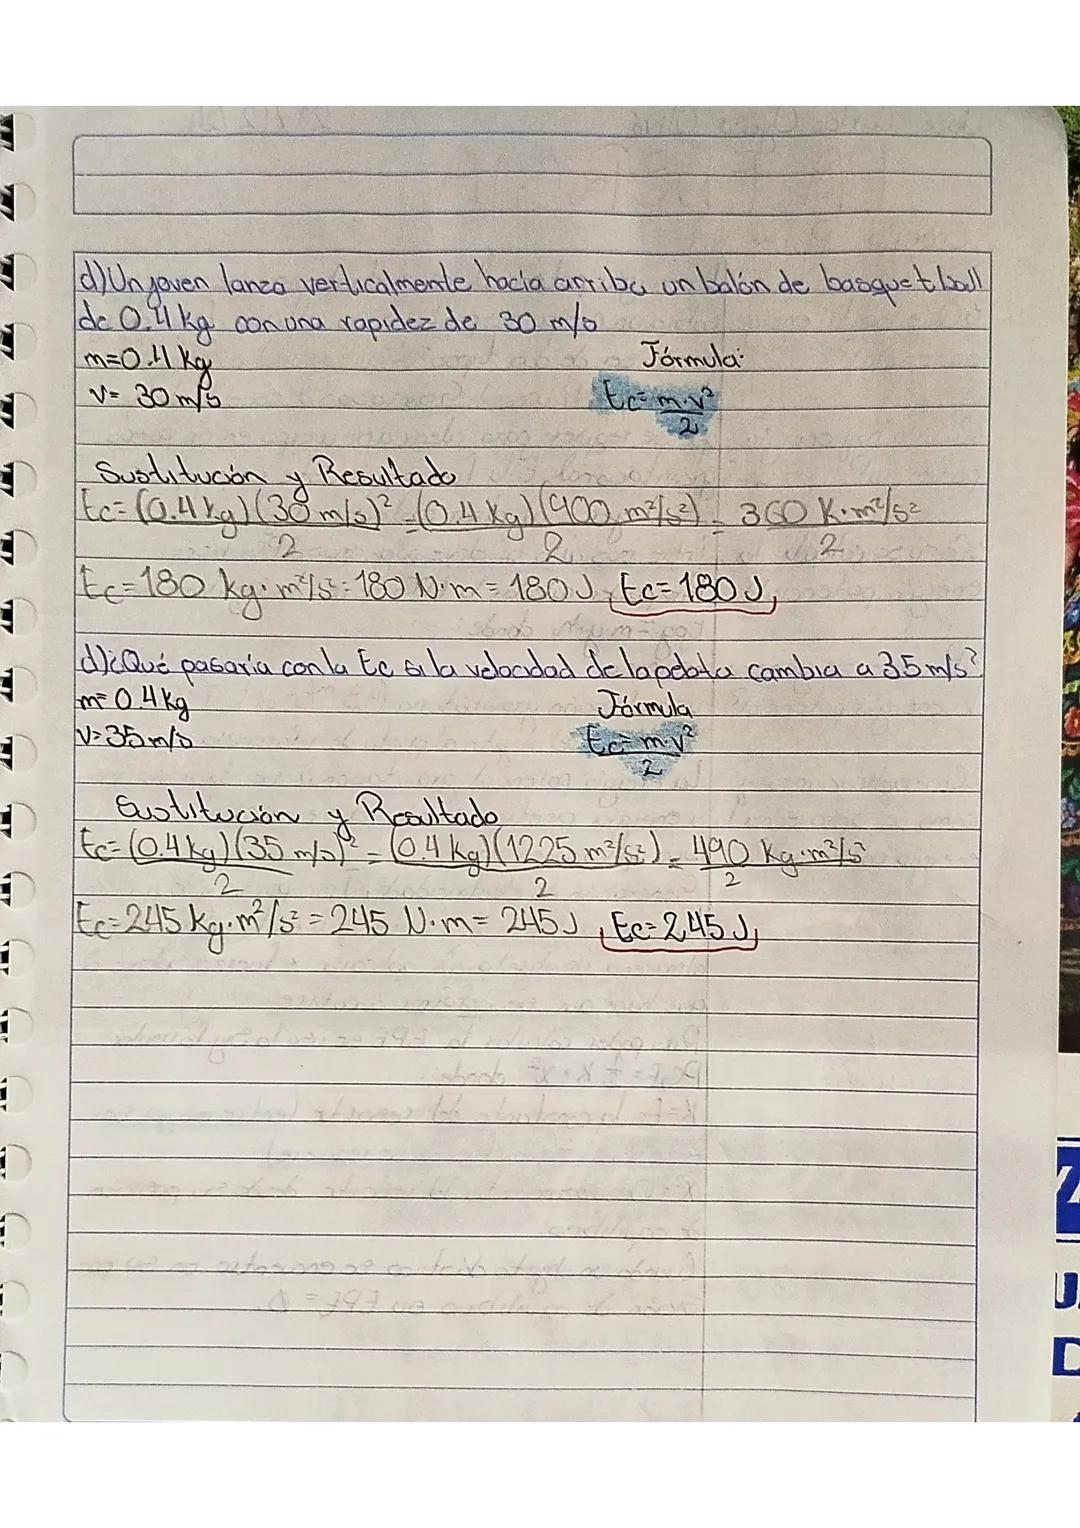 d) Un joven lanza verticalmente hacia arriba un balón de basquetball
de 0.4 kg con una rapidez de 30 m/s
m=0.4 kg Fórmula:
v= 30 m/s Ec= m·v²/2
Sustitución y Resultado
Ec= (0.4 kg)(30 m/s)²/2 = (0.4 kg)(900 m²/s²)/2 = 360 K·m²/s²/2
Ec=180 kg·m²/s² = 180 N·m = 180 J, Ec= 180 J
d) ¿Qué pasaría con la Ec si la velocidad de la pelota cambia a 35 m/s?
m= 0.4 kg Fórmula
V= 35 m/s Ec= m·v²/2
Sustitución y Resultado
Ec= (0.4 kg)(35 m/s)²/2 = (0.4 kg)(1225 m²/s²)/2 = 490 kg·m²/s²/2
Ec= 245 kg·m²/s² = 245 N·m = 245 J, Ec= 245 J